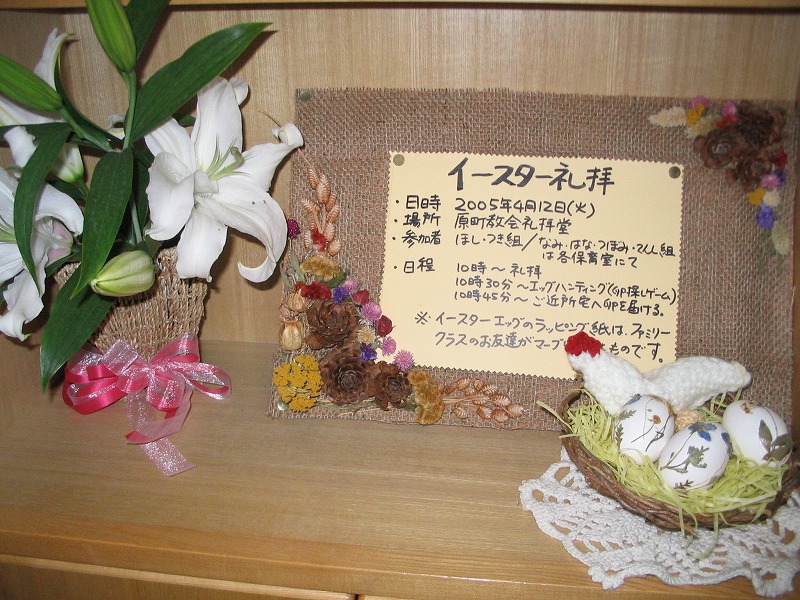 イースター礼拝
・日時 2005年4月12日(火)
・場所 原町教会礼拝堂
・参加者 ほし・つき組／なみ・はな・つぼみ・てんし組
は各保育室にて
・日程 10時〜礼拝
10時30分〜エッグハンティング(卵探しゲーム)
10時45分〜ご近所宅へ卵を届ける。
※イースターエッグのラッピング紙は、ファミリー
クラスのお友達がマーブ ものです。